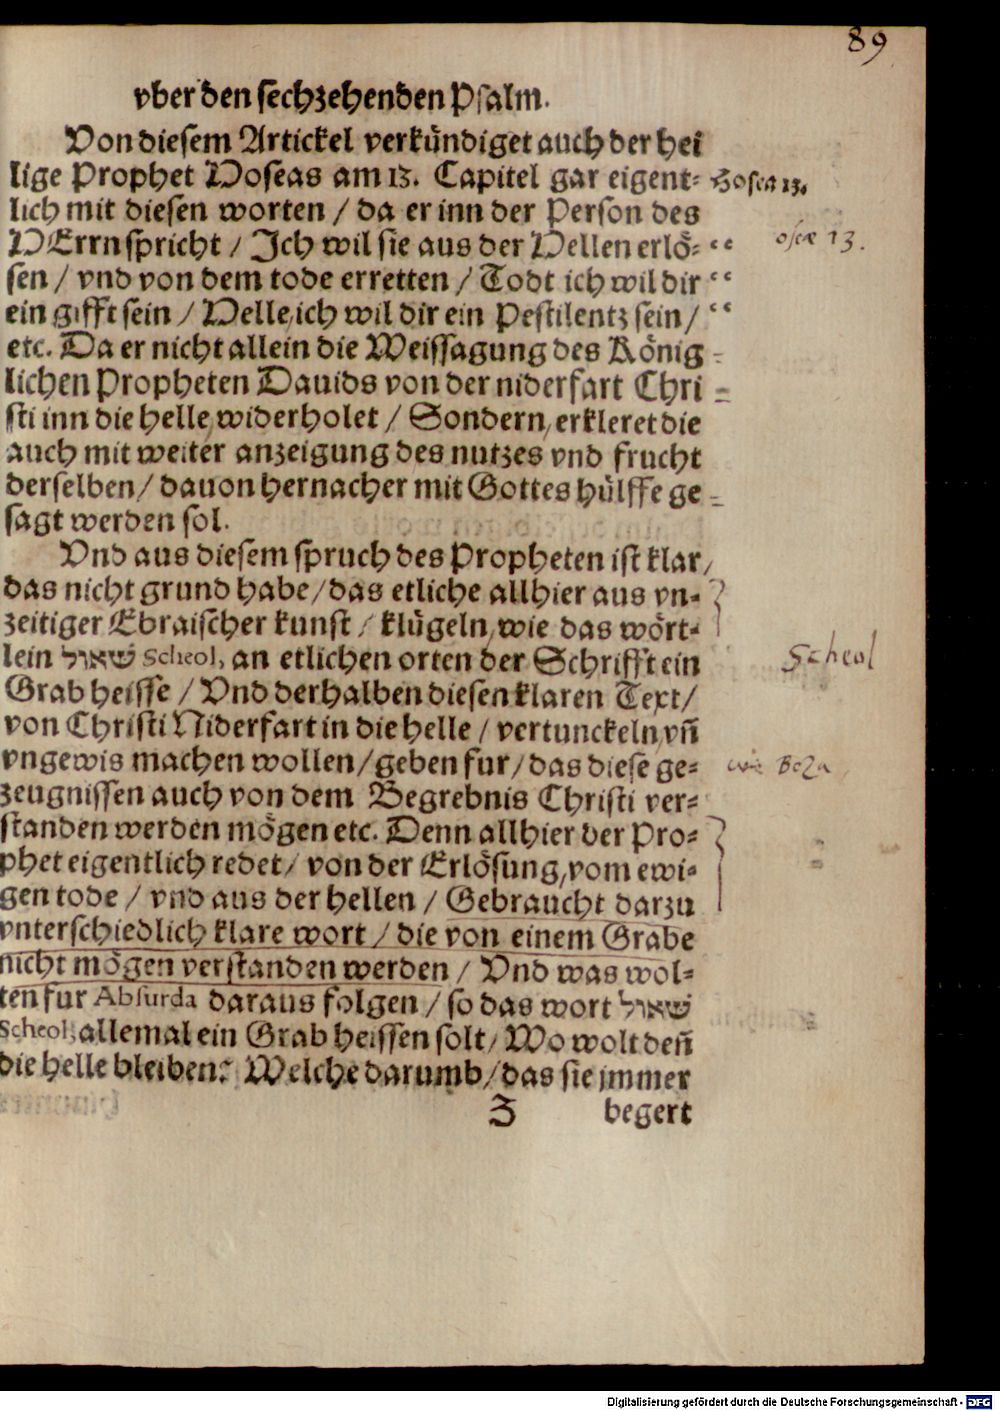 89
vber den sechzehenden Psalm.
Von diesem Artickel verkündiget auch der hei
lige Prophet Hoseas am 13. Capitel gar eigent= Hosea 13.
lich mit diesen worten / da er inn der Person des
HErrn spricht / Jch wil sie aus der Hellen erlö= “ osee 13.
sen / vnd von dem tode erretten / Todt ich wil dir “
ein gifft sein / Helle, ich wil dir ein Pestilentz sein / “
etc. Da er nicht allein die Weissagung des König =
lichen Propheten Dauids von der niderfart Chri =
sti inn die helle, widerholet / Sondern, erkleret die
auch mit weiter anzeigung des nutzes vnd frucht
derselben / dauon hernacher mit Gottes hülffe ge =
sagt werden sol.
Vnd aus diesem spruch des Propheten ist klar /
das nicht grund habe / das etliche allhier aus vn=
zeitiger Ebraischer kunst / klügeln, wie das wört=
lein שאול Scheol, an etlichen orten der Schrifft ein Scheol
Grab heisse / Vnd derhalben diesen klaren Text /
von Christi Niderfart in die helle / vertunckeln, vn̄
vngewis machen wollen / geben fur / das diese ge= wie Beza
zeugnissen auch von dem Begrebnis Christi ver=
standen werden mögen etc. Denn allhier der Pro=
phet eigentlich redet / von der Erlösung, vom ewi=
gen tode / vnd aus der hellen / Gebraucht darzu
vnterschiedlich klare wort / die von einem Grabe
nicht mögen verstanden werden / Vnd was wol=
ten fur Absurda daraus folgen / so das wort שאול
Scheol, allemal ein Grab heissen solt / Wo wolt den̄
die helle bleiben? Welche darumb / das sie jmmer
Z begert
Digitalisierung gefördert durch die Deutsche Forschungsgemeinschaft - DFG